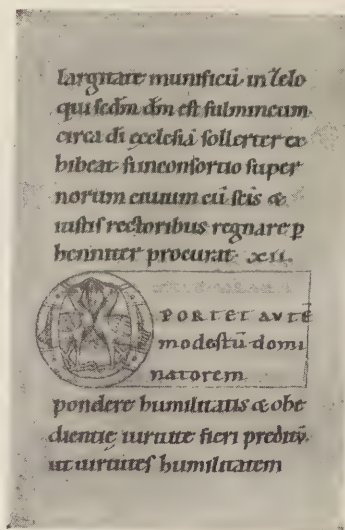 largitate munificū in Celo
qui scdm dm est fulmineum
circa di ecclesiā sollerter ex
hibeat sineconsortio super
norum ciuium cū scis &
iustis rectoribus regnare p
henniter procurat xii.
PORTET AVTĒ
modestū domi
natorem
pondere humilitatis & obe
dientię uirtute fieri preditū.
ut uirtutes humilitatem